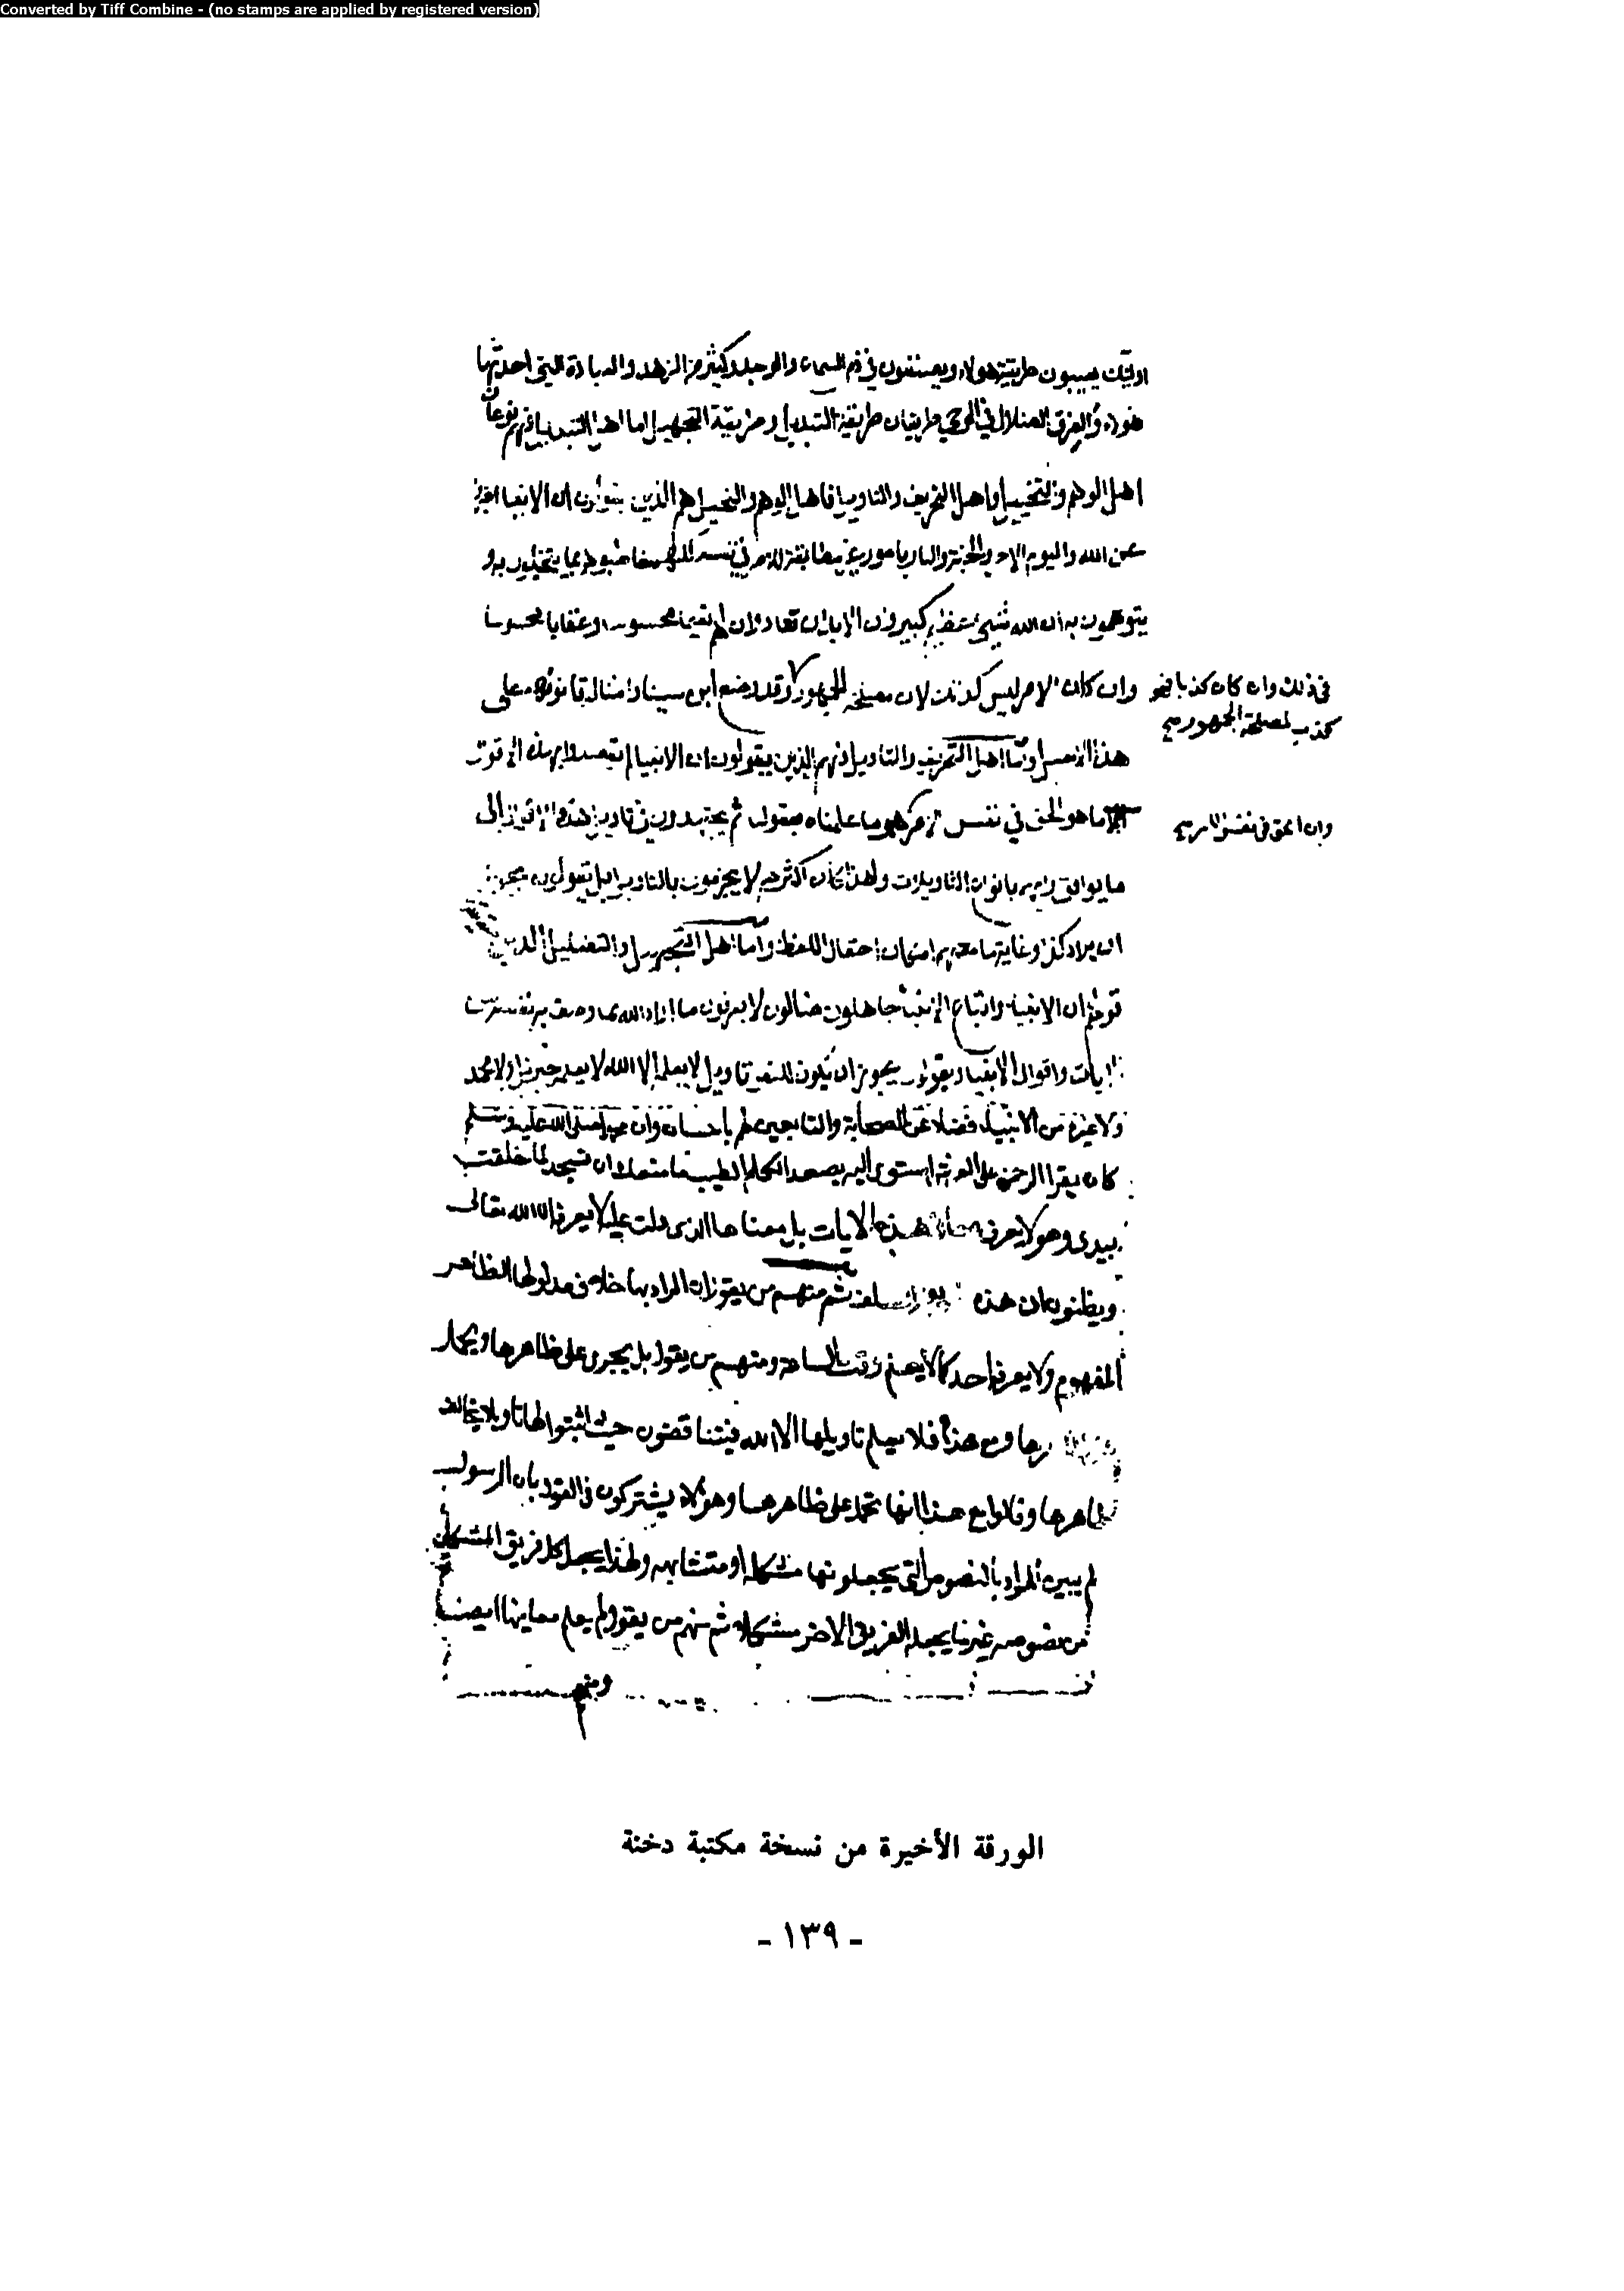 Converted by Tiff Combine - (no stamps are applied by registered version)
اوليك يعيبون طريقة هولاء ويصنفون في ذم السماع والوجد وكثير من الزهد والعبادة التي احدثها
هولاء والفرق الضلال في الوحي طريقان طريقة التبديل وطريقة التجهيل اما اهل التبديل فهم نوعان
اهل الوهم والتخييل واهل التحريف والتاويل فاهل الوهم والتخييل هم الذين يقولون ان الانبيا اخبروا
عن الله واليوم الاخر والجنة والنار بامور غير مطابقة للامر في نفسه لكنهم خاطبوهم بما يتخيلون به و
يتوهمون به ان الله شيئ عظيم كبير وان الابدان تعاد وان لهم نعيما محسوسا وعقابا محسوسا
وان كان الامر ليس كذلك لان مصلحة الجمهور وقد وضع ابن سينا وامثاله قانونهم على
في ذلك وان كان كذبا فهو
كذب لمصلحة الجمهور صح
هذا الاصل واما اهل التحريف والتاويل فهم الذين يقولون ان الانبيا لم يقصدوا بهذه الاقوال
ما هو الحق في نفس الامر هو ما علمناه بعقولنا ثم يجتهدون في تاويل هذه الاقوال الى
وان الحق في نفس الامر صح
ما يوافق رايهم بانواع التاويلات ولهذا كان اكثرهم لا يجزمون بالتاويل بل يقولون يجوز
ان يراد كذا وغاية ما معهم امكان احتمال اللفظ واما اهل التجهيل والتضليل الذين
قولهم ان الانبياء واتباع الانبياء جاهلون ضالون لا يعرفون ما اراد الله بما وصف به نفسه من
الايات واقوال الانبياء ويقولون يجوز ان يكون للنص تاويل لا يعلمه الا الله لا يعلمه جبريل ولا محمد
ولا غيره من الانبياء فضلا عن الصحابة والتابعين لهم باحسان وان محمدا صلى الله عليه وسلم
كان يقرا الرحمن على العرش استوى اليه يصعد الكلم الطيب ما منعك ان تسجد لما خلقت
بيدي وهو لا يعرف معاني هذه الايات بل معناها الذي دلت عليه لا يعرفه الا الله تعالى
ويظنون ان هذه طريقة السلف ثم منهم من يقول ان المراد بها خلاف مدلولها الظاهر
المفهوم ولا يعرفه احد كما لا يعلم وقت الساعة ومنهم من يقول بل يجرى على ظاهرها ويحمل
ظاهرها ومع هذا فلا يعلم تاويلها الا الله فيتناقضون حيث اثبتوا لها تاويلا يخالف
ظاهرها وقالوا مع هذا انها تحمل على ظاهرها وهؤلاء يشتركون في القول بان الرسول
لم يبين المراد بالنصوص التي يجعلونها مشكلة او متشابهه ولهذا يجعل كل فريق المشكل
من نصوصه غير ما يجعله الفريق الاخر مشكلا ثم منهم من يقول لم يعلم معانيها ايضا
ومنهم
الورقة الأخيرة من نسخة مكتبة دخنة
- ١٣٩ -